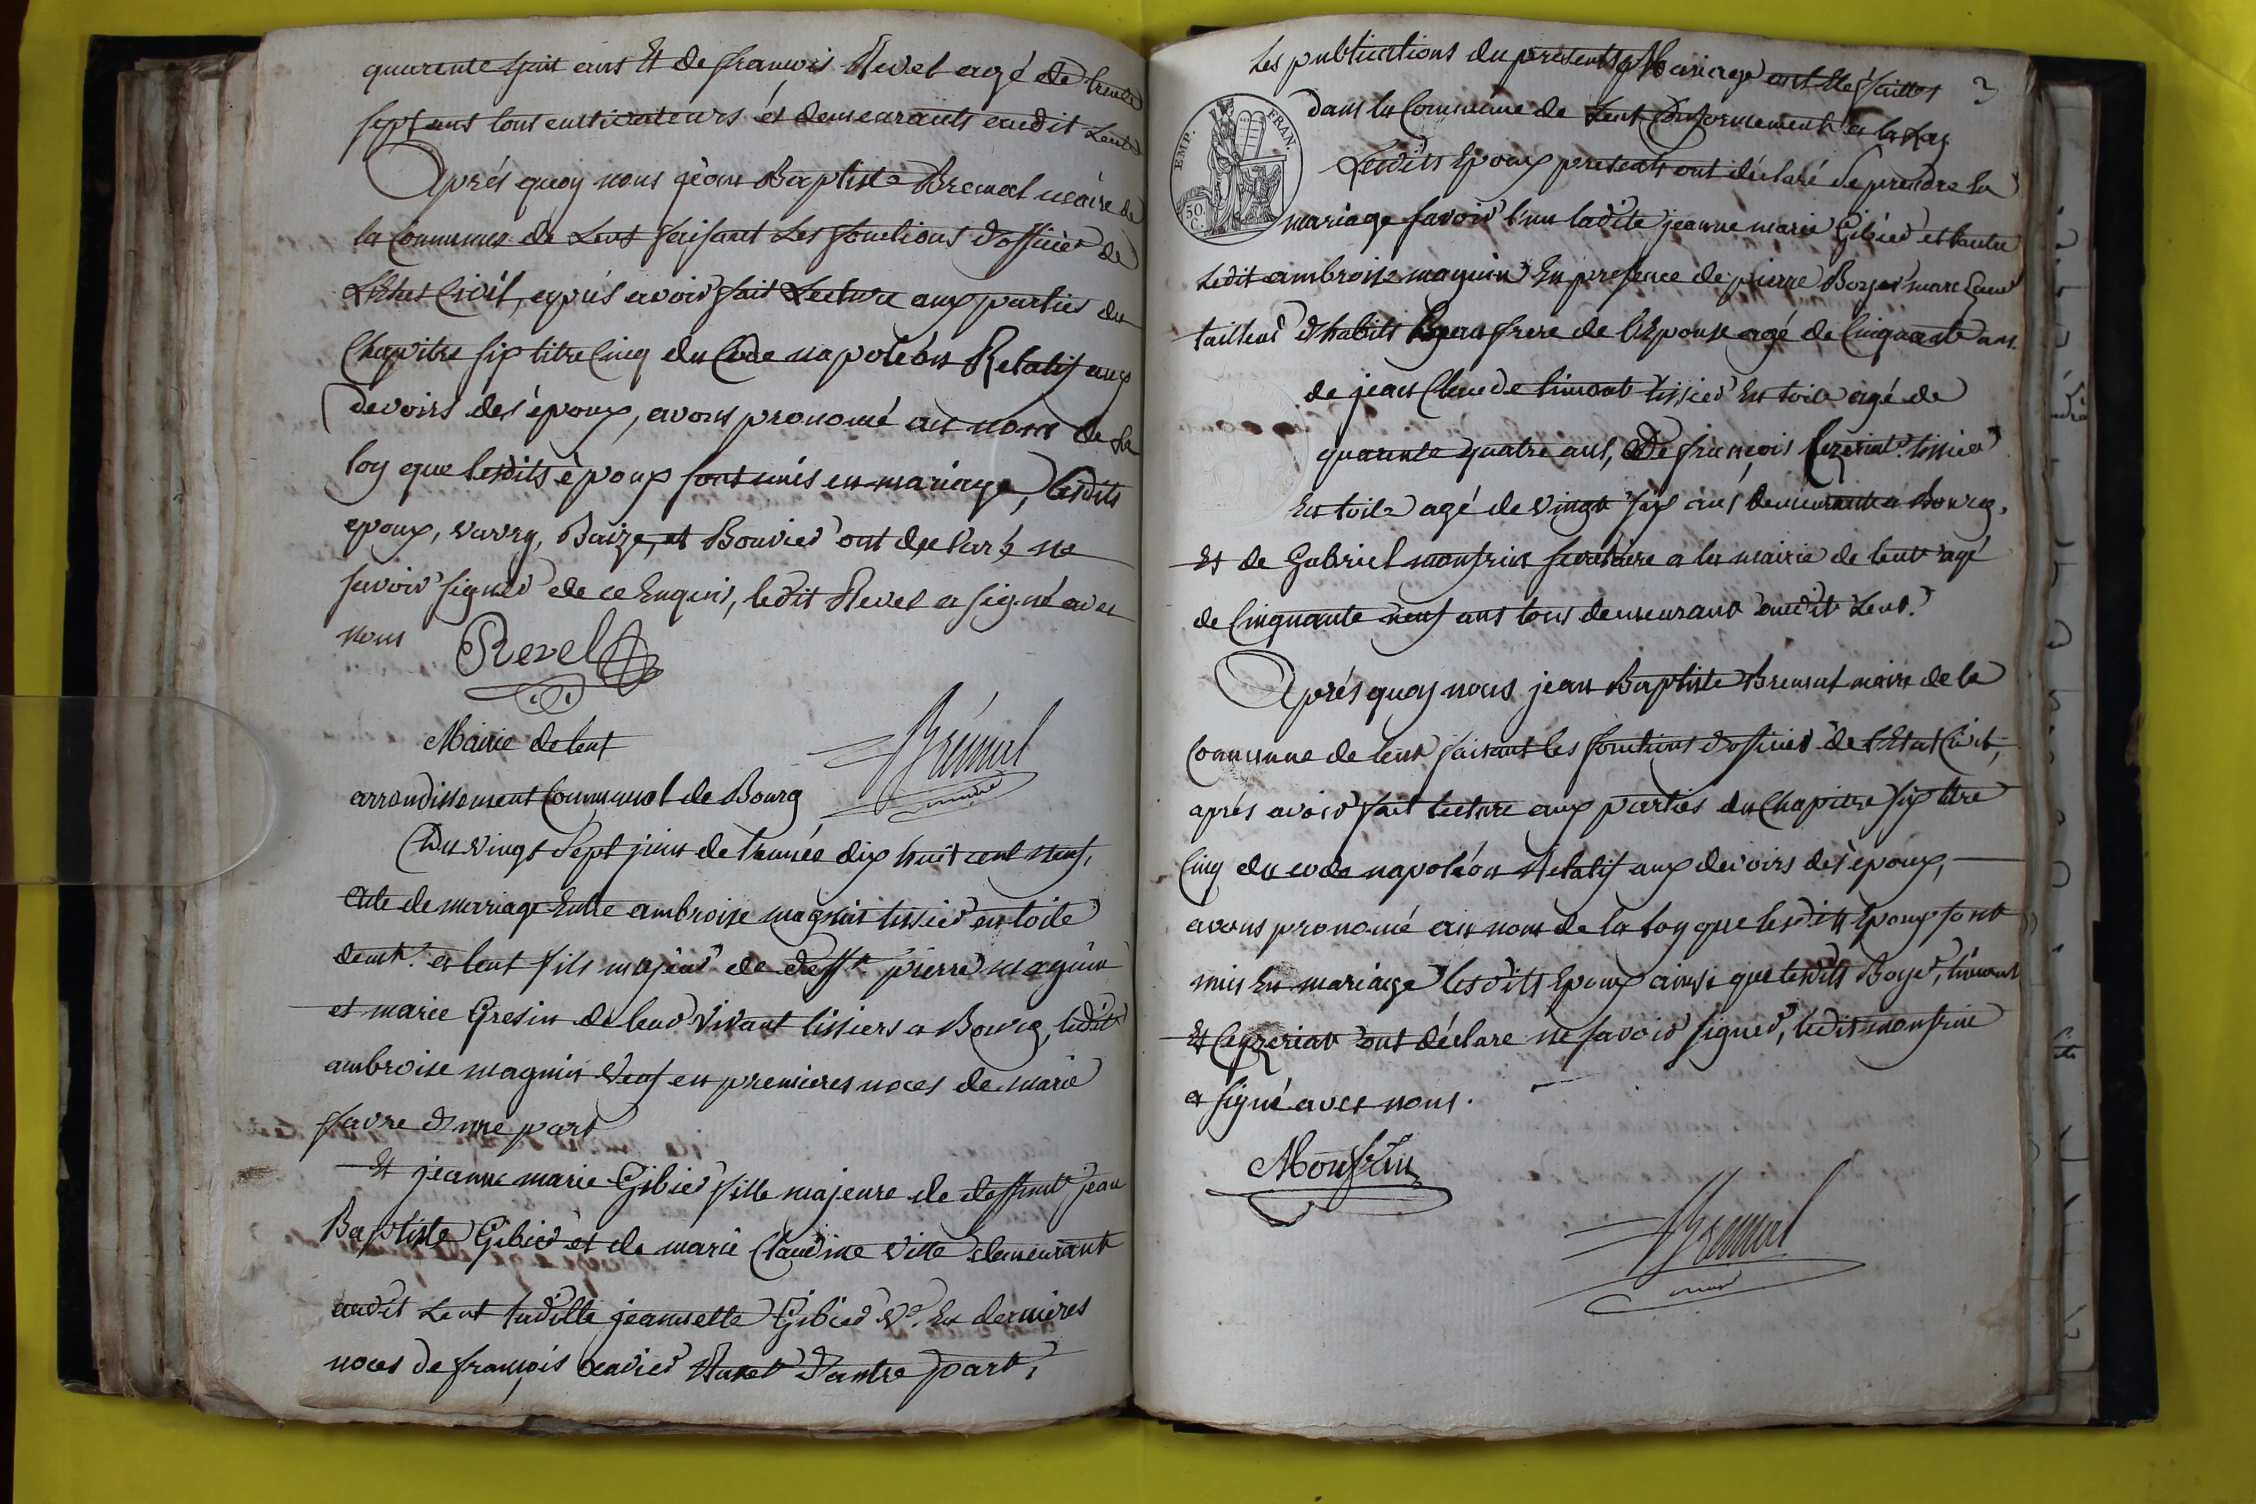 quarente huit ans Et de francois Revel agé de trente
sept ans tous cultivateurs et demeurants audit Lent
Après quoy nous jèan Baptiste Bremal maire de
la Commune de Lent faisant Les fonctions d'officier de
L'Etat Civil, après avoir fait Lecture aux parties du
Chapitre six titre Cinq du Code napoléon Relatif aux
devoirs des époux, avons prononcé au nom de la
loy que lesdits époux sont unis en mariage, lesdits
epoux, varey, Baize, et Bouvier ont déclaré ne
savoir signer de ce Enquis, ledit Revel a signé avec
nous
Revel
Mairie de lent
Brémal
maire
arrondissement Communal de Bourg
Du vingt Sept juin de l'année dix huit cent neuf,
Acte de mariage Entre ambroise magnin tissier en toile
demt. a lent fils majeur de deff.t pierre magnin
et marie Gresin de leur vivant tissiers a Bourg, ledit
ambroise magnin veuf en premieres noces de marie
favre d'une part
Et jeanne marie Gibier fille majeure de deffunt jean
Baptiste Gibier et de marie Claudine vitte demeurant
audit Lent laditte jeannette Gibier Ve. En dernières
noces de françois xavier d'autre part,
Les publications du présent Mariage ont été faittes 3
EMP. FRAN.
50 C.
dans la Commune de Lent Conformement a la Loy
Lesdits Epoux presents ont déclaré se prendre en
mariage savoir l'une ladite jeanne marie Gibier et l'autre
Ledit ambroise magnin En presence de pierre Boyer
tailleur d'habits Beau frere de l'Epouse agé de Cinquante ans
de jean Claude limont tissier En toile agé de
quarante quatre ans, De françois Ceyzeriat tissier
En toile agé de vingt six ans demeurant a Bourg,
Et de Gabriel monfrin secretaire a la mairie de lent agé
de Cinquante neuf ans tous demeurant audit Lent.
Après quoy nous jean Baptiste Bremal maire de la
Commune de lent faisant les fonctions d'officier de l'Etat Civil,
après avoir fait lecture aux parties du Chapitre six titre
Cinq du code napoléon Relatif aux devoirs des époux,
avons prononcé au nom de la loy que lesdits Epoux sont
unis En mariage lesdits Epoux ainsi que lesdits Boyer, limont
Et Ceyzeriat ont déclare ne savoir signer, ledit monfrin
a signé avec nous.
Monfrin
Brémal
maire